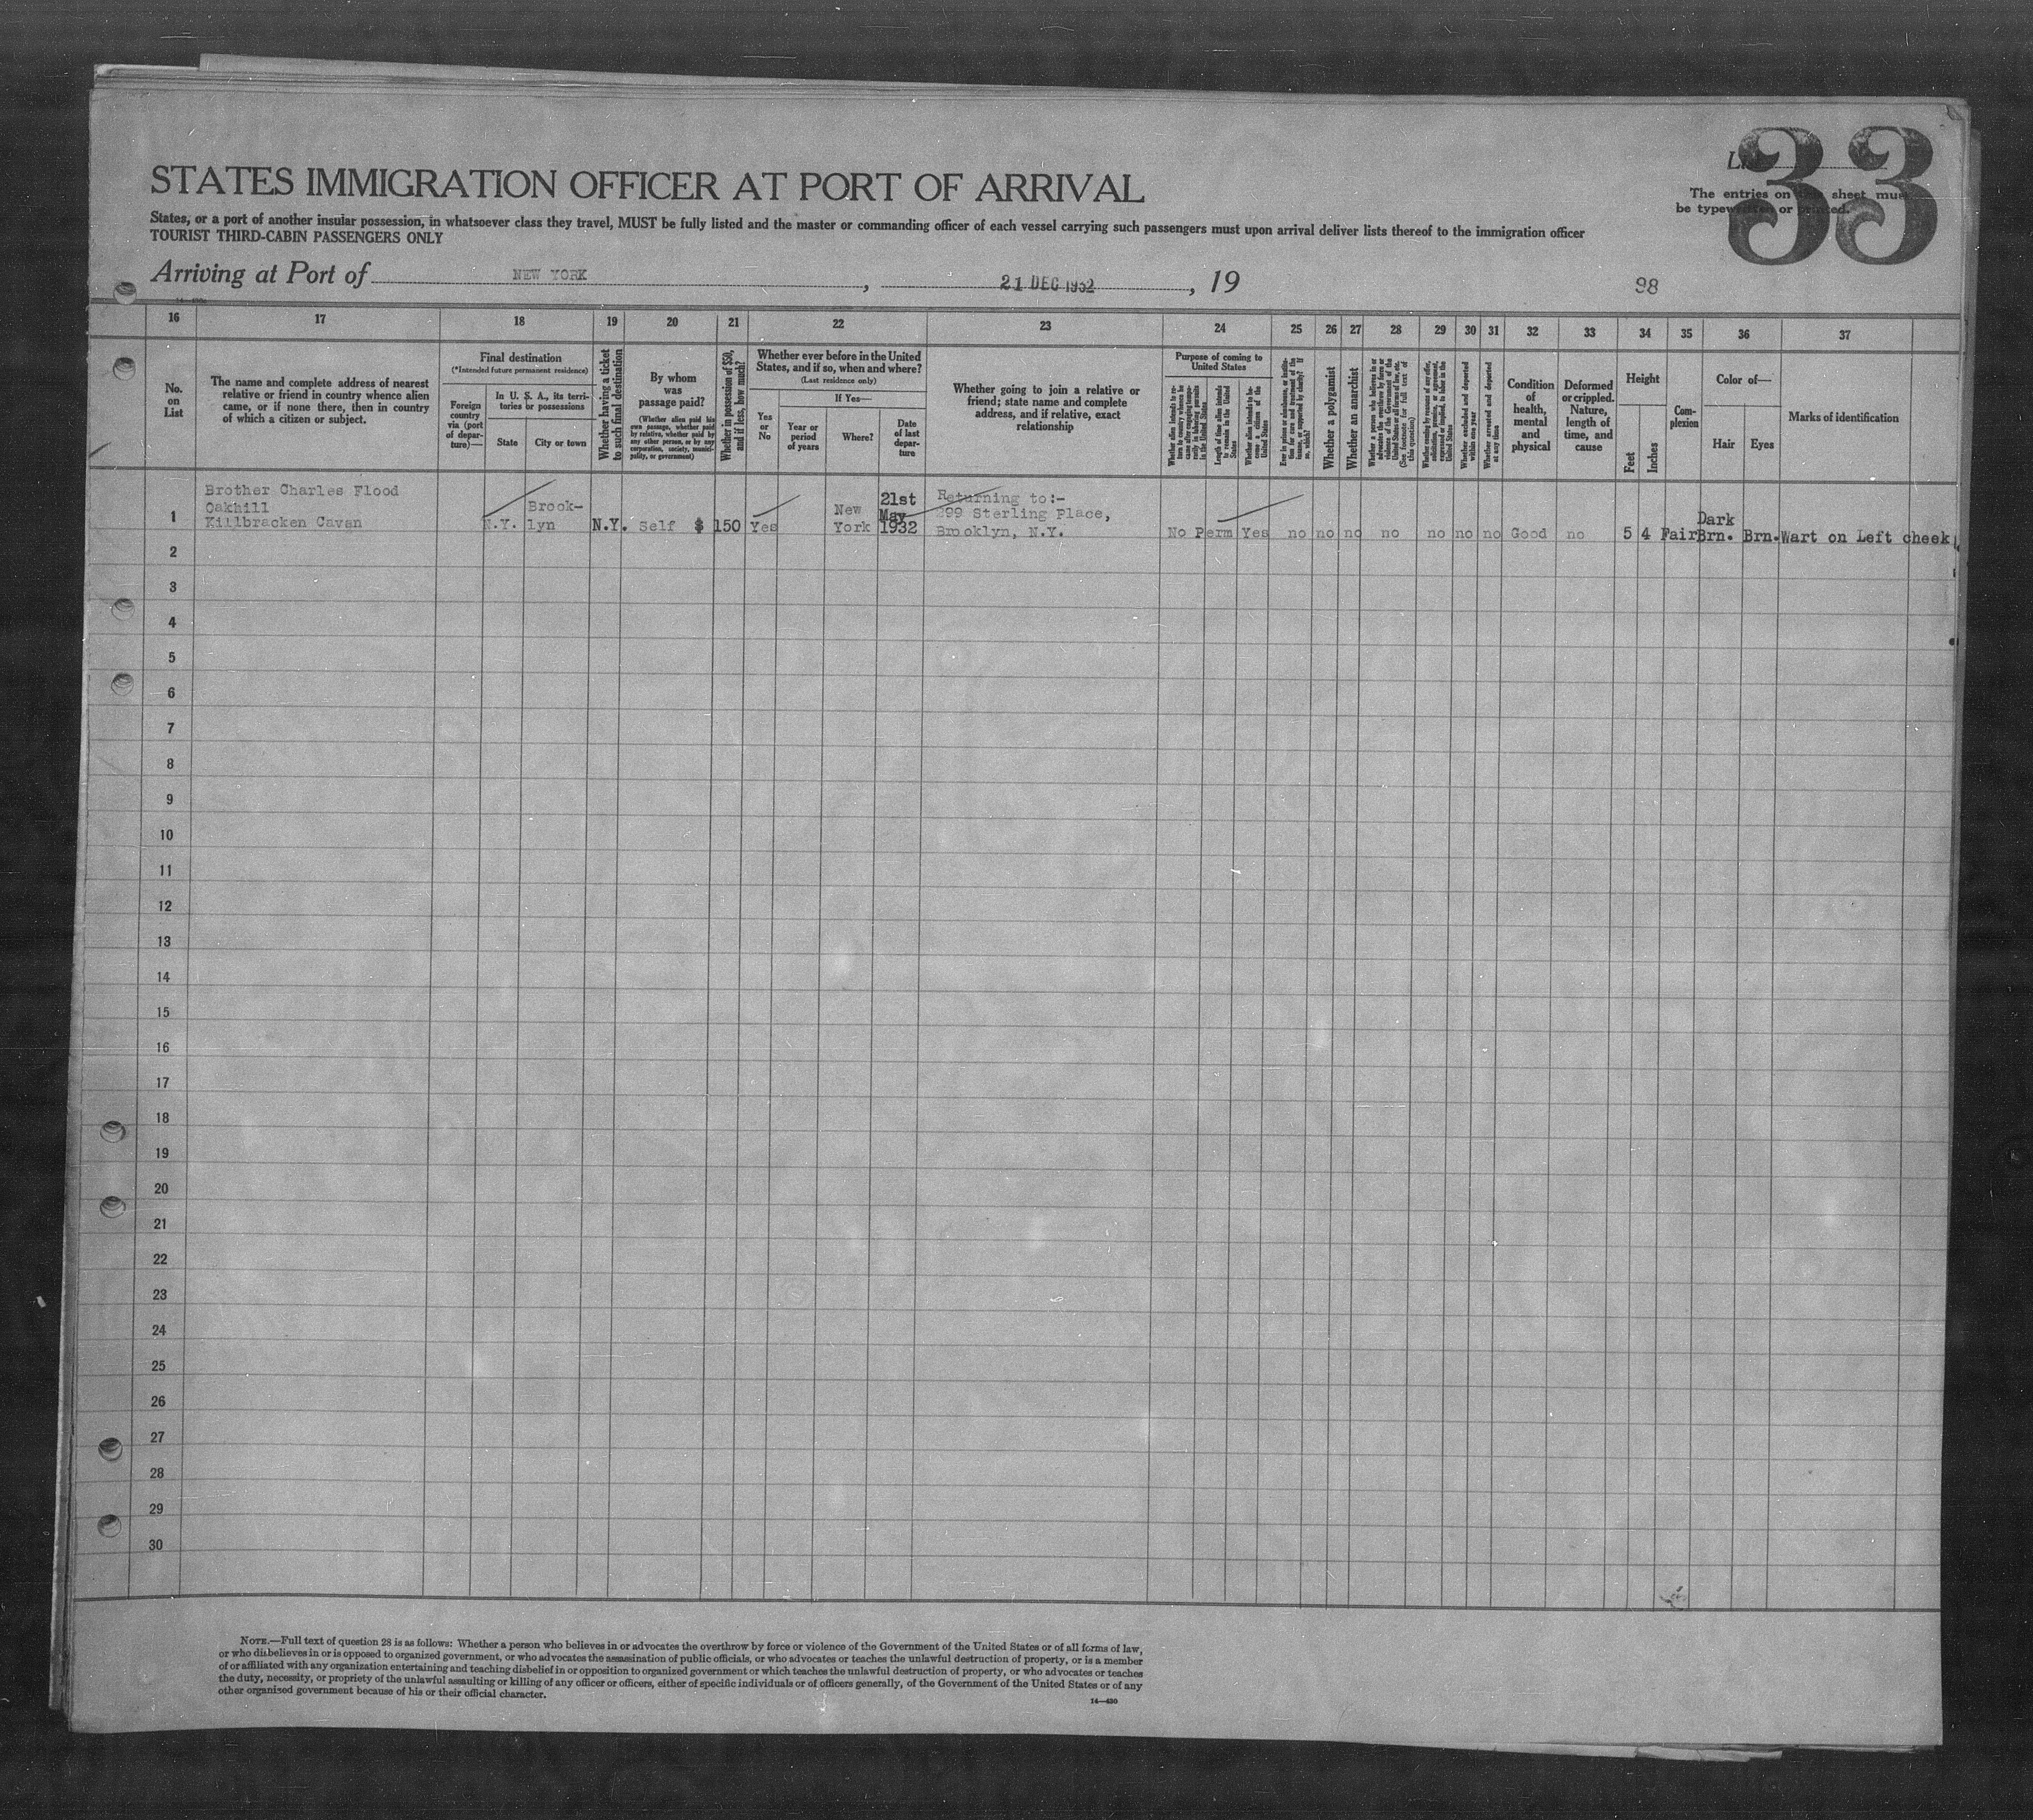 33
List
The entries on this sheet must
be typewritten or printed.
STATES IMMIGRATION OFFICER AT PORT OF ARRIVAL
States, or a port of another insular possession, in whatsoever class they travel, MUST be fully listed and the master or commanding officer of each vessel carrying such passengers must upon arrival deliver lists thereof to the immigration officer
TOURIST THIRD-CABIN PASSENGERS ONLY
Arriving at Port of NEW YORK, 21 DEC 1932, 19
98
16 17 18 19 20 21 22 23 24 25 26 27 28 29 30 31 32 33 34 35 36 37
No. on List
The name and complete address of nearest
relative or friend in country whence alien
came, or if none there, then in country
of which a citizen or subject.
Final destination
(*Intended future permanent residence)
Foreign country via (port of departure)—
In U. S. A., its territories or possessions
State
City or town
Whether having a ticket to such final destination
By whom was passage paid?
(Whether alien paid his own passage, whether paid by relative, whether paid by any other person, or by any corporation, society, municipality, or government)
Whether in possession of $50, and if less, how much?
Whether ever before in the United
States, and if so, when and where?
(Last residence only)
Yes or No
If Yes—
Year or period of years
Where?
Date of last departure
Whether going to join a relative or
friend; state name and complete
address, and if relative, exact
relationship
Purpose of coming to
United States
Whether alien intends to return to country whence he came after engaging temporarily in laboring pursuits in the United States
Length of time alien intends to remain in the United States
Whether alien intends to become a citizen of the United States
Ever in prison or almshouse, or institution for care and treatment of the insane, or supported by charity? If so, which?
Whether a polygamist
Whether an anarchist
Whether a person who believes in or advocates the overthrow by force or violence of the Government of the United States or all forms of law, etc. (See footnote for full text of this question)
Whether coming by reason of any offer, solicitation, promise, or agreement, expressed or implied, to labor in the United States
Whether excluded and deported within one year
Whether arrested and deported at any time
Condition of health, mental and physical
Deformed or crippled. Nature, length of time, and cause
Height
Feet
Inches
Complexion
Color of—
Hair
Eyes
Marks of identification
Brother Charles Flood
Oakhill
Killbracken Cavan
1 N.Y. Brook-
lyn N.Y. Self $ 150 Yes New
York 21st
May
1932 Returning to:-
299 Sterling Place,
Brooklyn, N.Y. No Perm Yes no no no no no no no Good no 5 4 Fair Dark
Brn. Brn. Wart on Left cheek
2
3
4
5
6
7
8
9
10
11
12
13
14
15
16
17
18
19
20
21
22
23
24
25
26
27
28
29
30
NOTE.—Full text of question 28 is as follows: Whether a person who believes in or advocates the overthrow by force or violence of the Government of the United States or of all forms of law,
or who disbelieves in or is opposed to organized government, or who advocates the assassination of public officials, or who advocates or teaches the unlawful destruction of property, or is a member
of or affiliated with any organization entertaining and teaching disbelief in or opposition to organized government or which teaches the unlawful destruction of property, or who advocates or teaches
the duty, necessity, or propriety of the unlawful assaulting or killing of any officer or officers, either of specific individuals or of officers generally, of the Government of the United States or of any
other organized government because of his or their official character.
14—430